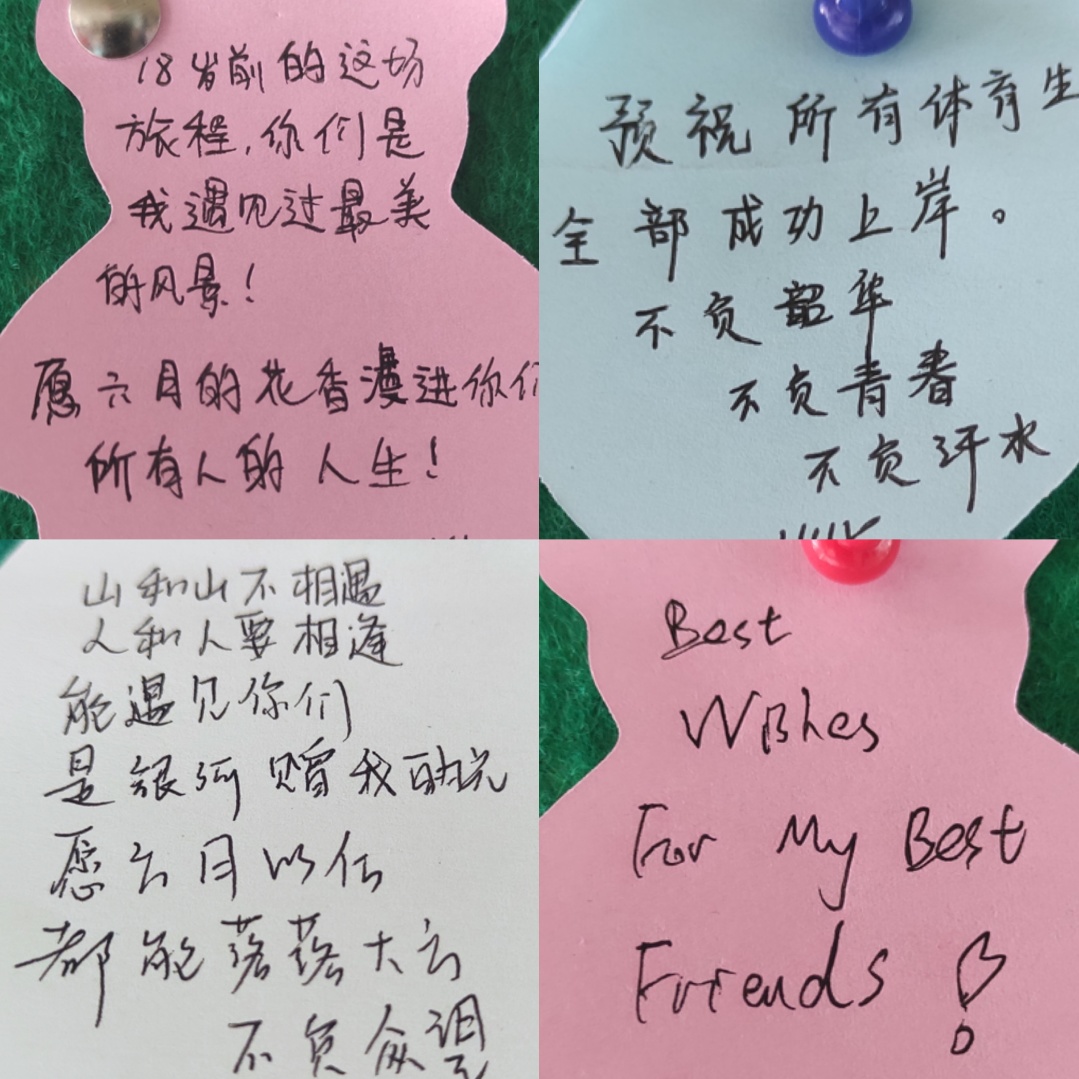 18岁前的这场
旅程,你们是
我遇见过最美
的风景!
愿六月的花香漫进你们
所有人的人生!
预祝所有体育生
全部成功上岸。
不负韶华
不负青春
不负汗水
山和山不相遇
人和人要相逢
能遇见你们
是银河赠我的光
愿六月以后
都能落落大方
不负众望
Best
Wishes
For My Best
Friends!